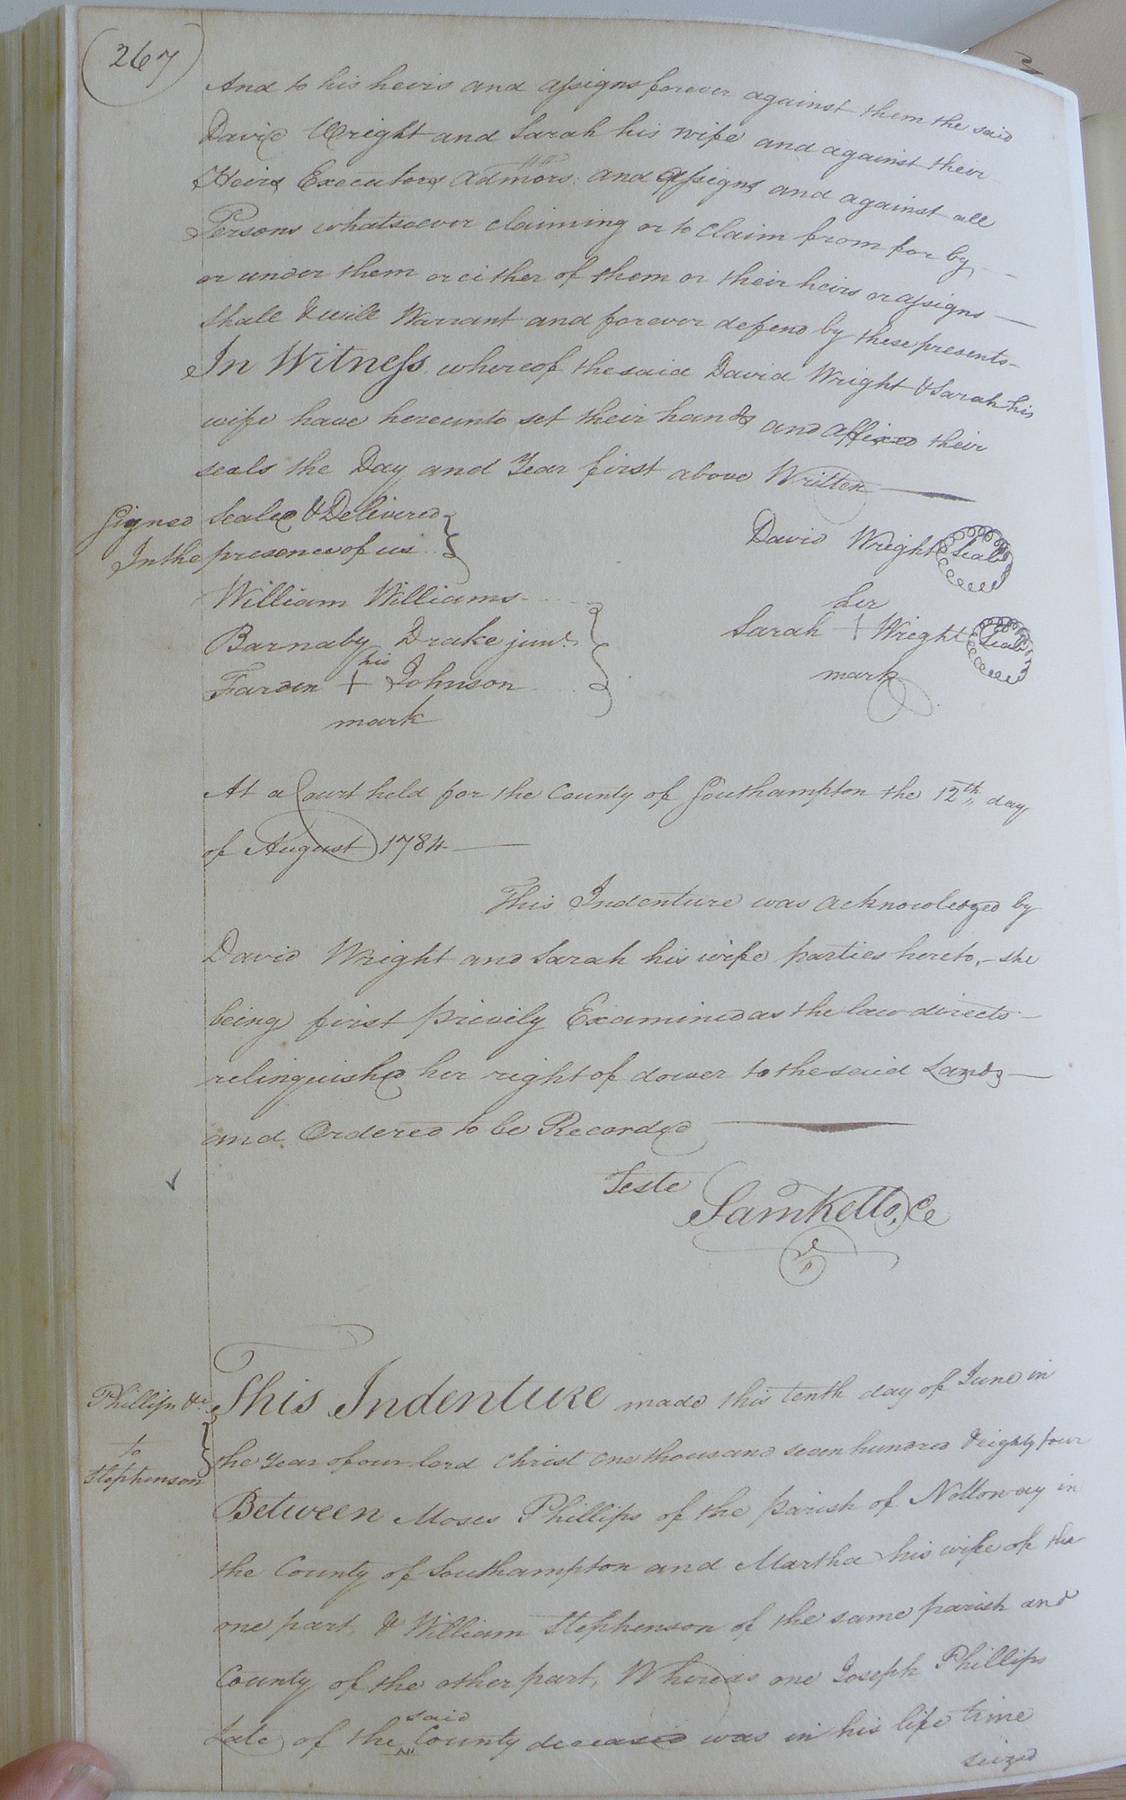 267
And to his heirs and assigns forever against them the said
David Wright and Sarah his wife and against their
Heirs Executors admors: and assigns and against all
Persons whatsoever claiming or to Claim from for by
or under them or either of them or their heirs or assigns
Shall & will Warrant and forever defend by these presents
In Witness whereof the said David Wright & Sarah his
wife have hereunto set their hands and affixed their
seals the Day and Year first above Written
Signed Sealed & Delivered
In the presence of us
David Wright Seal
William Williams
her
Barnaby Drake junr.
Sarah + Wright Seal
his
Farden + Johnson
mark
mark
At a Court held for the County of Southampton the 12th day
of August 1784
This Indenture was acknowledged by
David Wright and Sarah his wife parties hereto, she
being first privily Examined as the law directs
relinquished her right of dower to the said Lands
and Ordered to be Recorded
Teste
Sam Kello, C
Phillips &c
to
Stephenson
This Indenture made this tenth day of June in
the Year of our lord Christ one thousand seven hundred & eighty four
Between Moses Phillips of the parish of Nottoway in
the County of Southampton and Martha his wife of the
one part & William Stephenson of the same parish and
County of the other part, Whereas one Joseph Phillips
said
Late of the County deceased was in his life time
seized